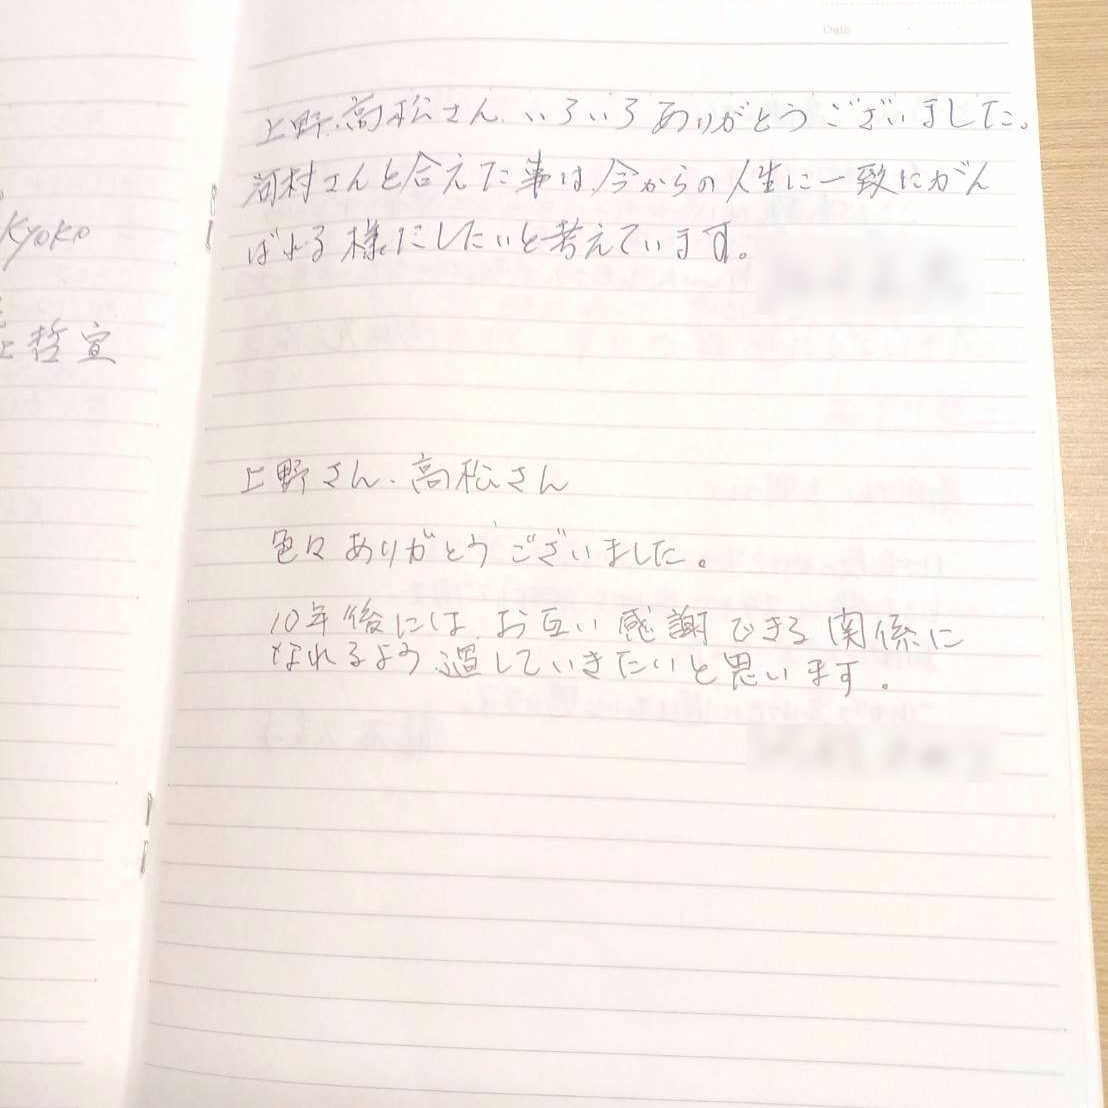 Date
上野.高松さん.いろいろありがとうございました。
河村さんと合えた事は.今からの人生に一致にがん
ばよる様にしたいと考えています。
Kyoko
哲宣
上野さん.高松さん
色々ありがとうございました。
10年後には.お互い感謝できる関係に
なれるよう過していきたいと思います。